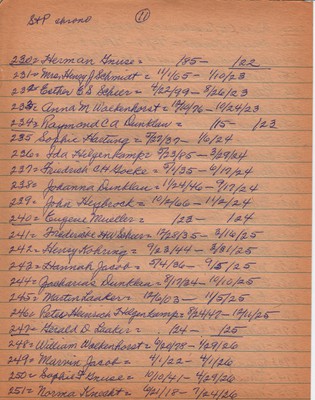 StP chrono (11)
230= Herman Gnuse= /85 - /22
231= Mrs. Henry J Schmidt= 11/1/65 - 1/10/23
232= Esther E S Scheer= 4/22/99 - 8/26/23
233= Anna M. Wackenhorst= 12/10/76 - 10/24/23
234= Raymond C A Dunklau= /15 - /23
235 Sophie Hartung= 3/27/37 - 1/6/24
236= Ida Helgenkamp= 5/23/05 - 3/29/24
237= Fredrich C H Goeke= 5/1/35 - 6/17/24
238= Johanna Dunklau= 11/24/46 - 9/17/24
239= John Heybrock= 10/6/66 - 11/2/24
240= Eugene Mueller= /23 - /24
241= Friedericke Scheer= 12/28/35 - 3/16/25
242= Henry Kohring= 9/23/44 - 3/31/25
243= Hannah Jacob= 5/4/36 - 9/5/25
244= Zacharias Dunklau= 8/17/34 - 10/10/25
245= Martin Laaker= 12/6/03 - 11/5/25
246= Peter Heinrich Helgenkamp= 8/24/47 - 12/11/25
247= Gerald D Laaker= /24 - /25
248= William Wackenhorst= 6/20/78 - 4/29/26
249= Marvin Jacob= 4/1/22 - 4/1/26
250= Sophie F Gnuse= 10/10/41 - 4/29/26
251= Norma Knecht= 6/21/18 - 7/24/26